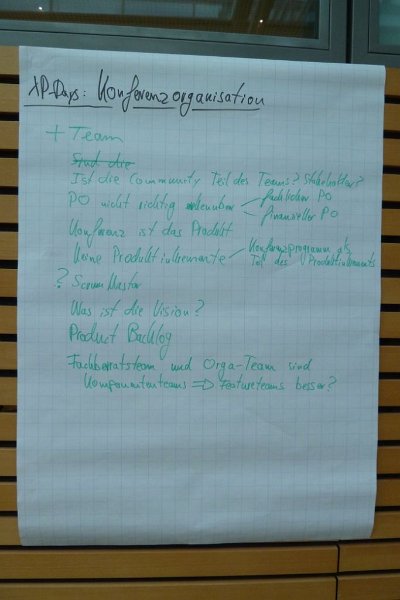 XP-Days: Konferenzorganisation
+ Team
Sind die
Ist die Community Teil des Teams? Stakeholder?
PO nicht richtig erkennbar
fachlicher PO
finanzieller PO
Konferenz ist das Produkt
Keine Produktinkremente
Konferenzprogramm als
Teil des Produktinkrements
? ScrumMaster
Was ist die Vision?
Product Backlog
Fachbeiratsteam und Orga-Team sind
Komponententeams => Featureteams besser?